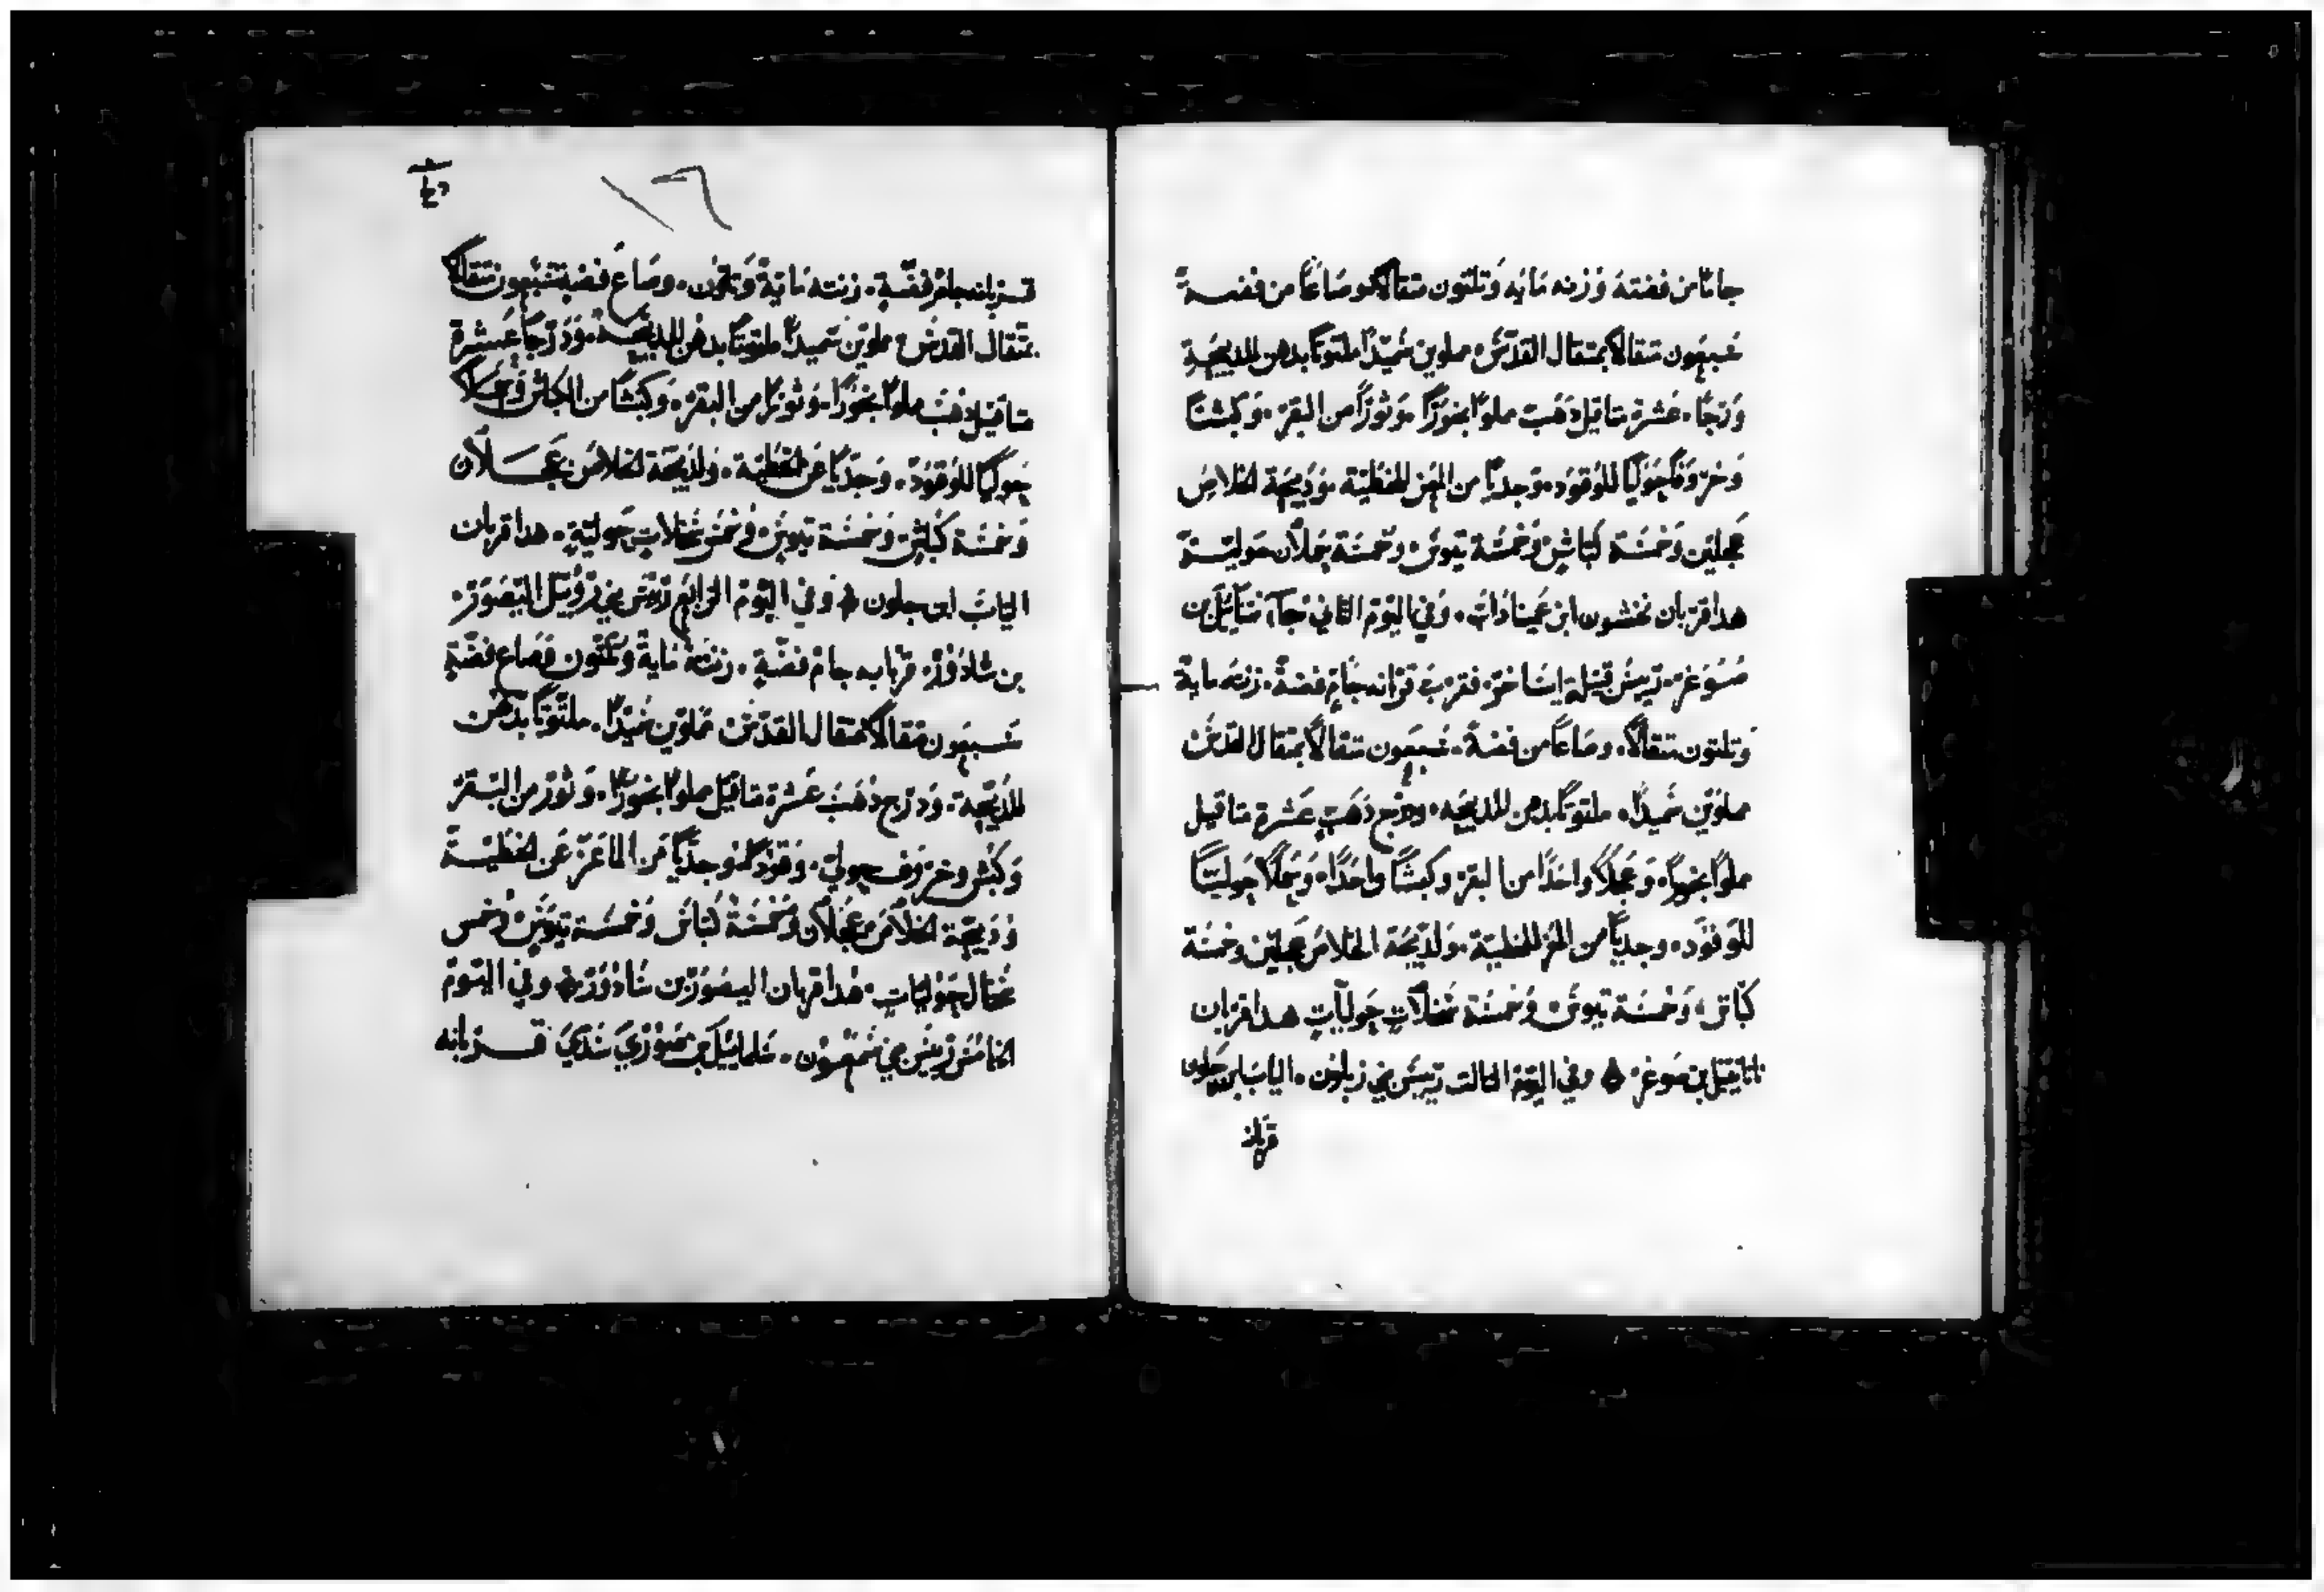 جامًا من فضته وزنه مايه وتلتون متقالاً وصاعًا من فضة
سبعون متقالاً بمتقال القدس مملوين سميدًا ملتوتًا بدهن للدبيحة
ودرجًا عشرة متاقيل دهب مملوًا بخورًا وثورًا من البقر وكبشًا
وخروفًا حوليًا للوقود وجديًا من المعز للخطية ودبيحة الخلاص
عجلين وخمسة كباش وخمسة تيوس وخمسة سخلان حولية
هدا قربان نحشون ابن عميناداب وفي اليوم التاني جآ نتانيل بن
صوغر ريس قبيلة ايساخر فقرب قربانه جام فضة زنته ماية
وتلتون متقالاً وصاعًا من فضة سبعون متقالاً بمتقال القدس
مملوين سميدًا ملتوتًا بدهن للدبيحه ودرج دهب عشرة متاقيل
مملوًا بخورًا وعجلاً واحدًا من البقر وكبشًا واحدًا وسخلاً حوليًا
للوقود وجديًا من المعز للخطية ولدبيحة الخلاص عجلين وخمسة
كباش وخمسة تيوس وخمسة سخلات حوليات هدا قربان
ناتانيل بن صوغر وفي اليوم التالت ريس بني زبلون الياب ابن حلون
قربانه
١٦
قربانه جام فضة زنته ماية وتلتون وصاع فضة سبعون متقالاً
بمتقال القدس مملوين سميدًا ملتوتًا بدهن للدبيحة ودرجًا عشرة
متاقيل دهب مملوًا بخورًا وثورًا من البقر وكبشًا من الكباش وسخلاً
حوليًا للوقود وجديًا عن الخطية ولدبيحة الخلاص عجلان
وخمسة كباش وخمسة تيوس وخمس سخلات حولية هدا قربان
الياب ابن حلون وفي اليوم الرابع ريس بني روبيل اليصور
بن شادور قربانه جام فضة زنته ماية وتلتون وصاع فضة
سبعون متقالاً بمتقال القدس مملوين سميدًا ملتوتًا بدهن
للدبيحة ودرج دهب عشرة متاقيل مملوًا بخورًا وثور من البقر
وكبش وخروف حولي وقودًا وجديًا من الماعز عن الخطية
ودبيحة الخلاص عجلان وخمسة كباش وخمسة تيوس وخمس
سخال حوليات هدا قربان اليصور بن شادور وفي اليوم
الخامس ريس بني شمعون سلماييل بن صوري سدي قربانه